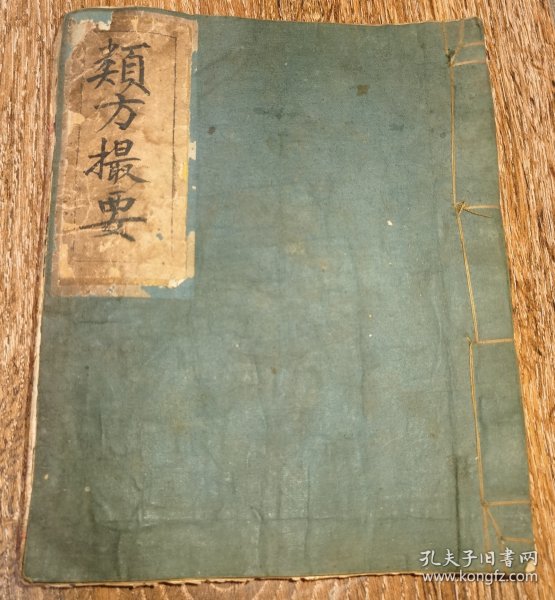 類方撮要
孔夫子旧书网
www.kongfz.com